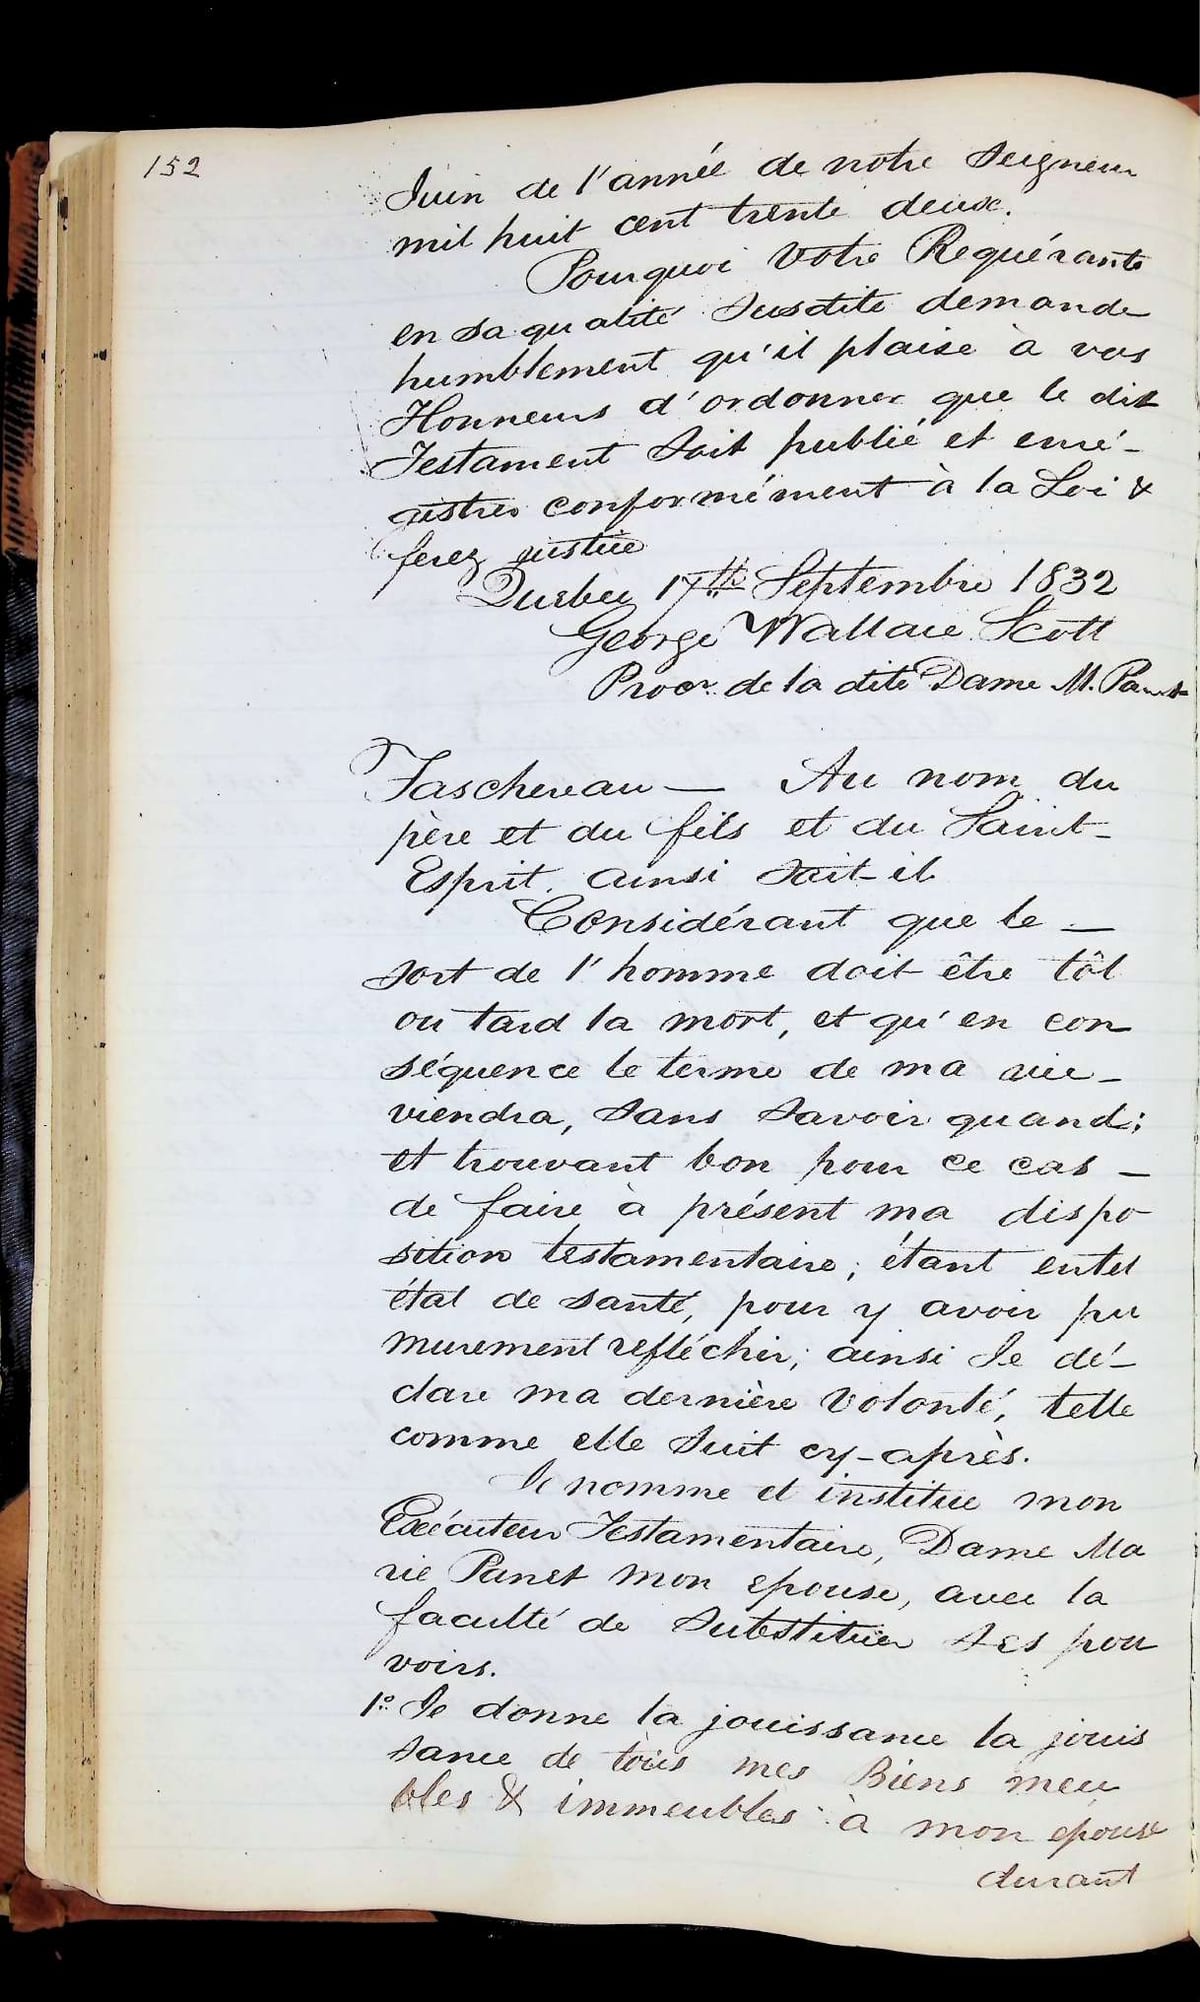 152
Juin de l'année de notre Seigneur
mil huit cent trente deux.
Pourquoi Votre Requérante
en sa qualité Susdite demande
humblement qu'il plaise à vos
Honneurs d'ordonner que le dit
Testament Soit publié et enré-
gistrer conformément à la Loi &
ferez justice
Quebec 17th Septembre 1832
George Wallace Scott
Procr de la dite Dame M. Panet
Taschereau — Au nom du
père et du fils et du Saint-
Esprit. ainsi Soit-il
Considérant que le —
sort de l'homme doit être tôt
ou tard la mort, et qu'en con
séquence le terme de ma vie -
viendra, Sans Savoir quand;
et trouvant bon pour ce cas -
de faire à présent ma dispo-
sition testamentaire; étant en tel
état de santé, pour y avoir pu
murement refléchir; ainsi Je dé-
clare ma dernière Volonté, telle
comme elle Suit cy-après.
Je nomme et institue mon
Exécuteur Testamentaire, Dame Ma
rie Panet mon epouse, avec la
faculté de Substituer Ses pou
voirs.
1º Je donne la jouissance la jouis
sance de tous mes Biens meu
bles & immeubles à mon epouse
durant